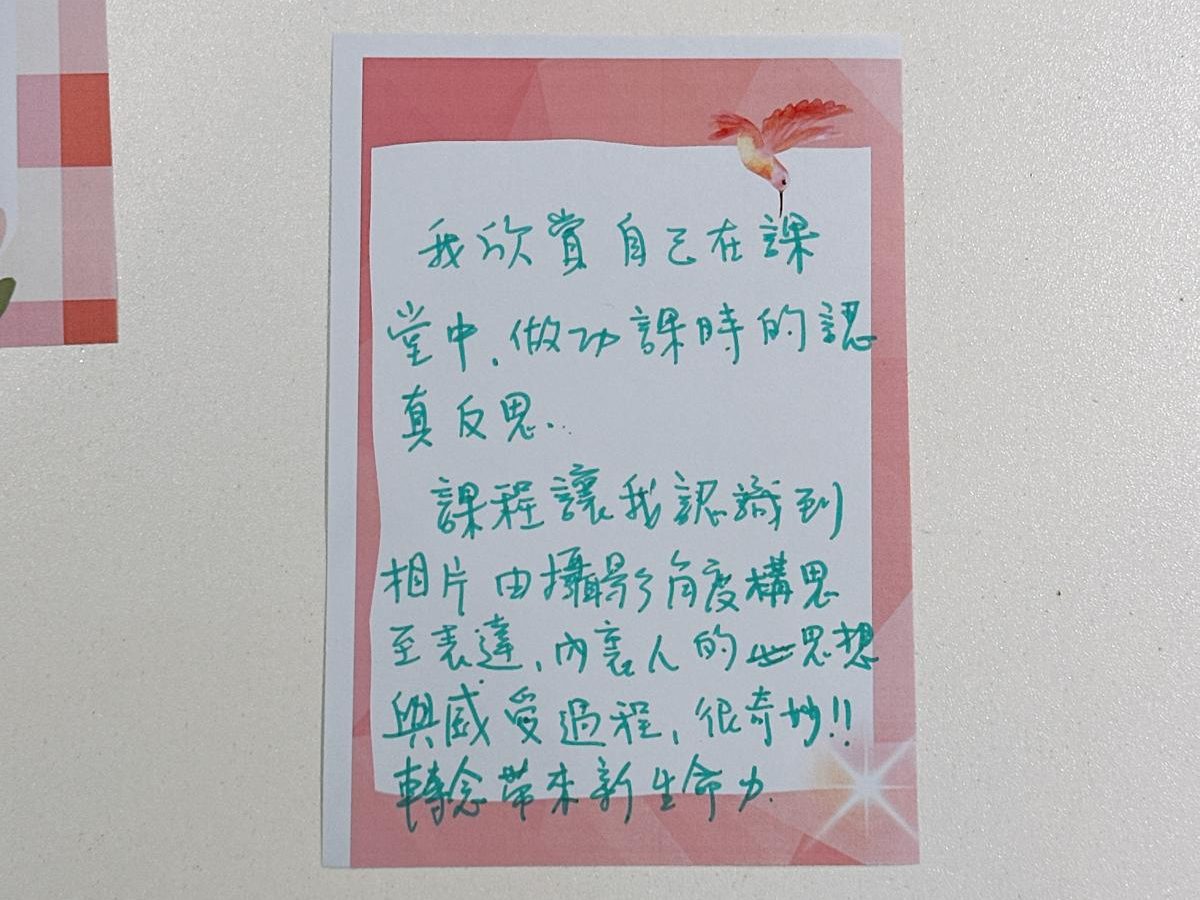 我欣賞自己在課
堂中、做功課時的認
真反思...
課程讓我認識到
相片由攝影角度構思
至表達、內裏人的思想
與感受過程，很奇妙!!
轉念帶來新生命力.